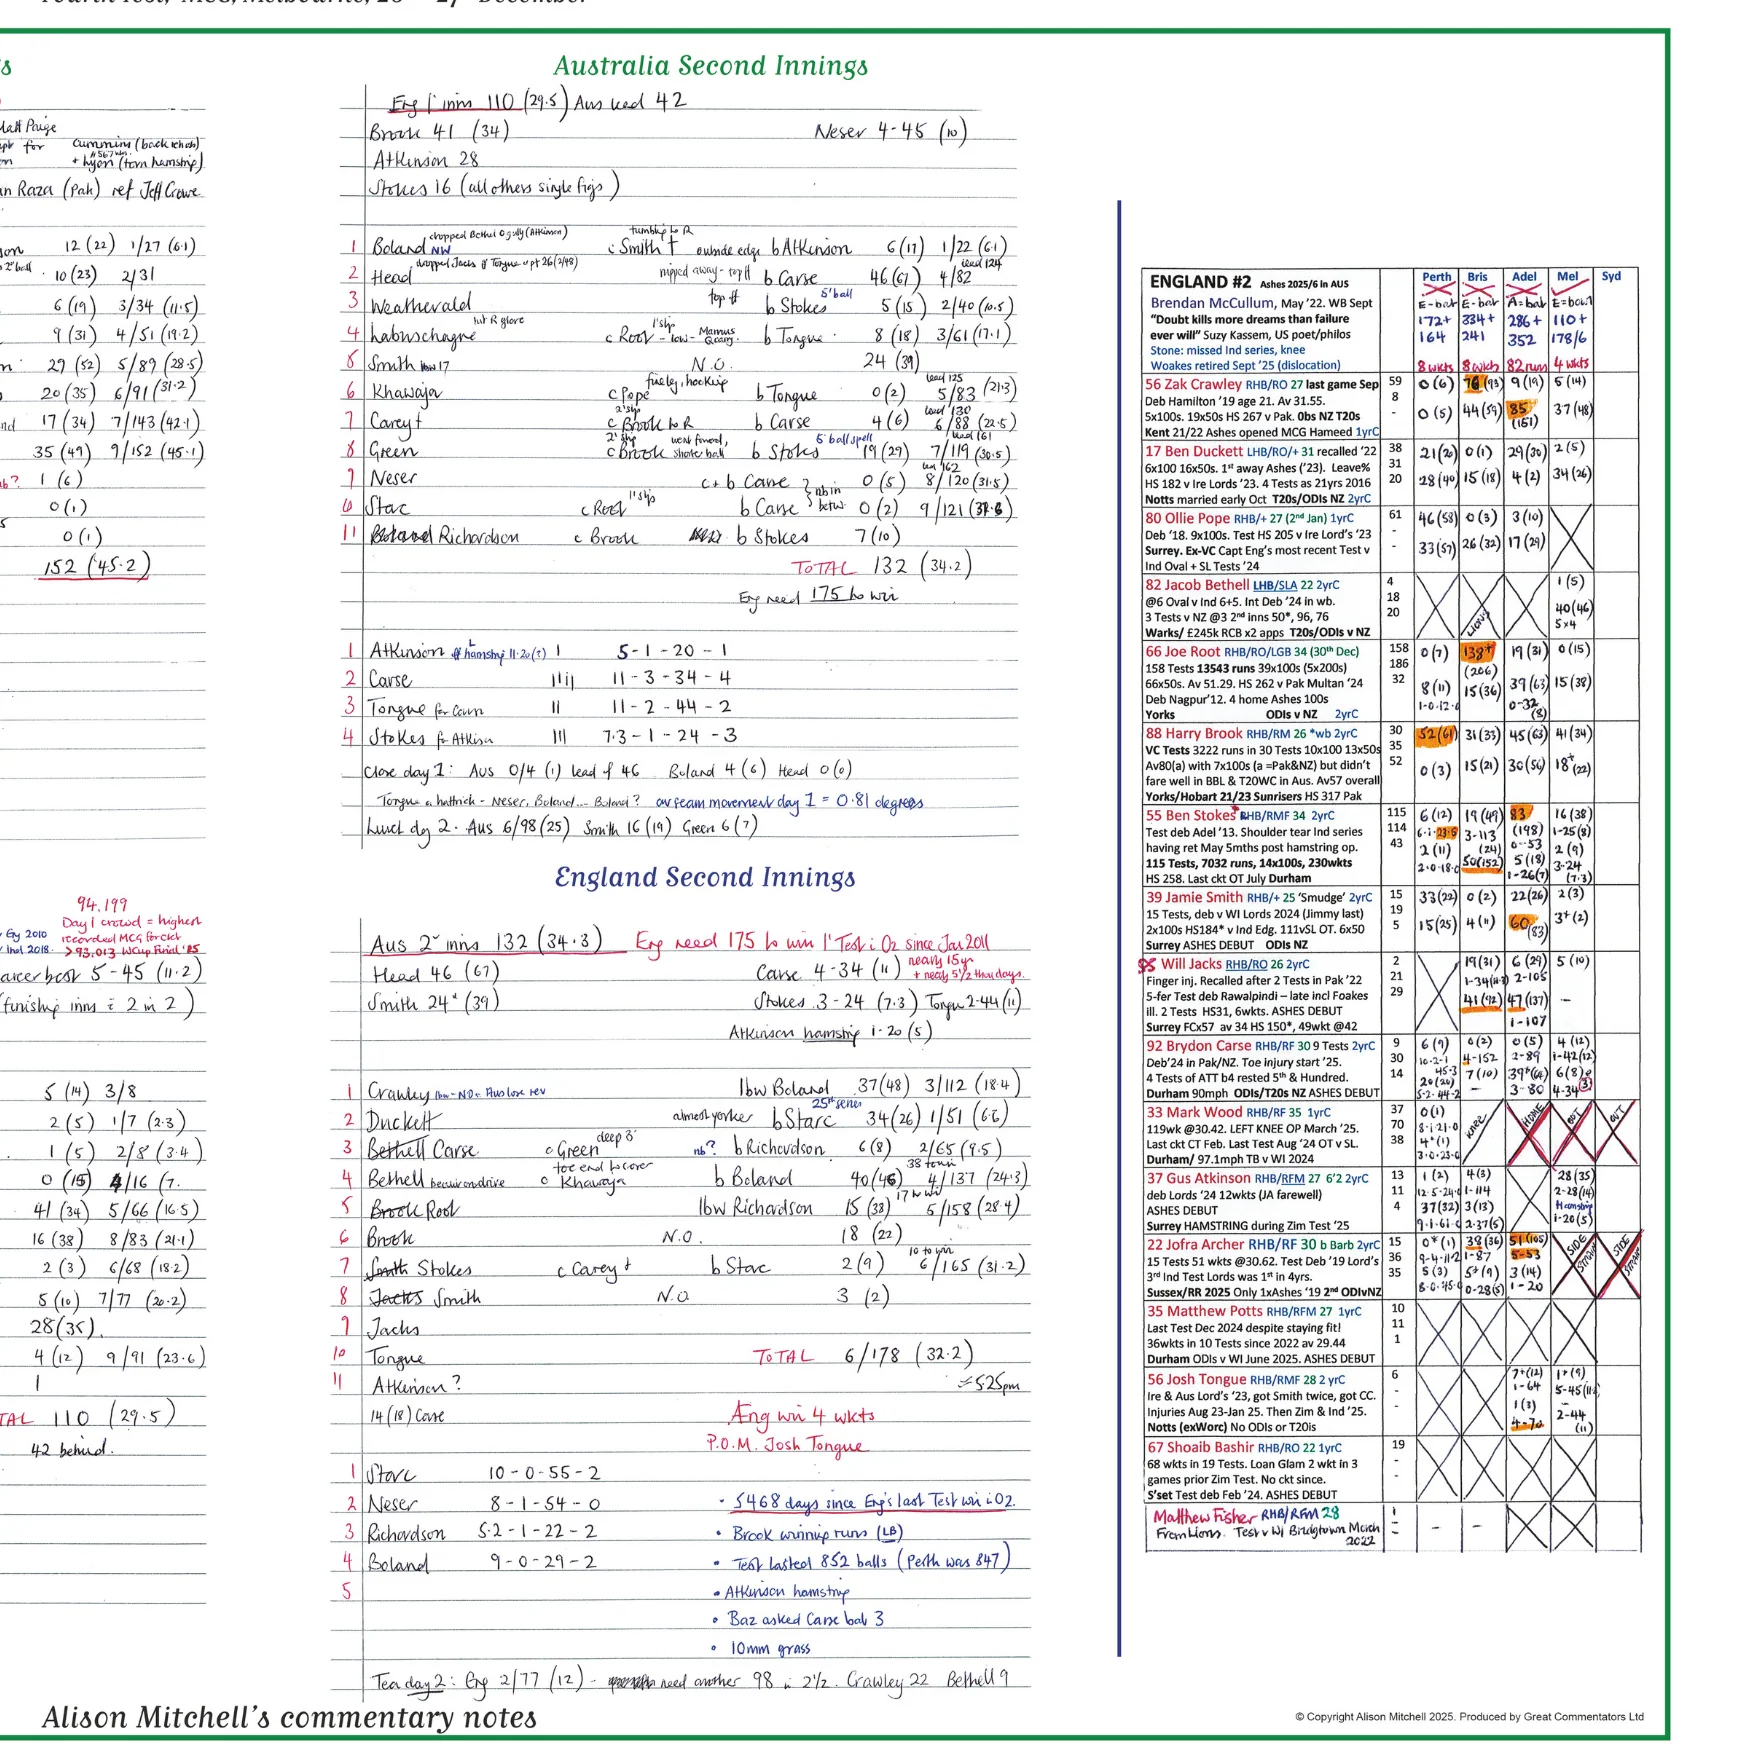 Fourth Test, MCG, Melbourne, 26 - 27 December
s
Matt Paige
for Cummins (back rehab)
+ Lyon (torn hamstrip)
an Raza (Pak) ref Jeff Crowe
son 12 (22) 1/27 (6.1)
2" ball 10 (23) 2/31
6 (19) 3/34 (11.5)
9 (31) 4/51 (19.2)
29 (52) 5/89 (28.5)
20 (35) 6/91 (31.2)
nd 17 (34) 7/143 (42.1)
35 (49) 9/152 (45.1)
nb? 1 (6)
0 (1)
0 (1)
152 (45.2)
94,199
Day 1 crowd = highest
Eg 2010 recorded MCG for ckt
Ind 2018. > 93,013 WCup Final '15
career best 5-45 (11.2)
(finishing inns = 2 in 2)
5 (14) 3/8
2 (5) 1/7 (2.3)
1 (5) 2/8 (3.4)
0 (15) 4/16 (7.
41 (34) 5/66 (16.5)
16 (38) 8/83 (21.1)
2 (3) 6/68 (18.2)
5 (10) 7/77 (20.2)
28 (35)
4 (12) 9/91 (23.6)
1
TAL 110 (29.5)
42 behind.
Australia Second Innings
Eng 1' inns 110 (29.5) Aus lead 42
Brook 41 (34) Neser 4-45 (10)
Atkinson 28
Stokes 16 (all others single figs)
chopped Bethel 0 gully (Atkinson) tumbling to R
1 Boland NW c Smith † outside edge b Atkinson 6 (17) 1/22 (6.1)
dropped Jacks off Tongue @ pt 26 (2/48) lead 124
2 Head nipped away - top off b Carse 46 (67) 4/82
5' ball
3 Weatherald top off b Stokes 5 (15) 2/40 (10.5)
hit R glove 1' slip
4 Labuschagne c Root - low - Marnus b Tongue 8 (18) 3/61 (17.1)
5 Smith N.O. 24 (39)
fueley, hooking lead 125
6 Khawaja c Pope b Tongue 0 (2) 5/83 (21.3)
2' slip lead 130
7 Carey † c Brook to R b Carse 4 (6) 6/88 (22.5)
2' slip went forward, 5' ball spell lead 161
8 Green c Brook shorter ball b Stokes 19 (29) 7/119 (30.5)
lead 162
9 Neser c + b Carse 0 (5) 8/120 (31.5)
1' slip nb in betw.
10 Starc c Root b Carse 0 (2) 9/121
11 Boland Richardson c Brook b Stokes 7 (10)
TOTAL 132 (34.2)
Eng need 175 to win
1 Atkinson L hamstring 11.20 (?) I 5-1-20-1
2 Carse IIII 11-3-34-4
3 Tongue for Carse II 11-2-44-2
4 Stokes for Atkinson III 7.3-1-24-3
Close day 1: Aus 0/4 (1) lead of 46 Boland 4 (6) Head 0 (0)
Tongue a hattrick - Neser, Boland... Boland? av seam movement day 1 = 0.81 degrees
Lunch day 2. Aus 6/98 (25) Smith 16 (19) Green 6 (7)
England Second Innings
Aus 2' inns 132 (34.3) Eng need 175 to win 1' Test in Oz since Jan 2011
nearly 15 yr
Head 46 (67) Carse 4-34 (11) + nearly 5 1/2 thou days.
Smith 24* (39) Stokes 3-24 (7.3) Tongue 2-44 (11)
Atkinson hamstring 1-20 (5)
1 Crawley lbw - NO - Aus lose rev lbw Boland 37 (48) 3/112 (18.4)
25th series
2 Duckett almost yorker b Starc 34 (26) 1/51 (6.6)
deep 3'
3 Bethell Carse c Green nb? b Richardson 6 (8) 2/65 (9.5)
toe end to cover 38 to win
4 Bethell c Khawaja b Boland 40 (46) 4/137 (24.3)
17 to win
5 Brook Root lbw Richardson 15 (38) 5/158 (28.4)
6 Brook N.O. 18 (22)
10 to win
7 Smith Stokes c Carey † b Starc 2 (9) 6/165 (31.2)
8 Jacks Smith N.O 3 (2)
9 Jacks
10 Tongue TOTAL 6/178 (32.2)
11 Atkinson? = 525pm
14 (18) Carse Eng win 4 wkts
P.O.M. Josh Tongue
1 Starc 10-0-55-2
2 Neser 8-1-54-0 • 5468 days since Eng's last Test win in Oz.
3 Richardson 5.2-1-22-2 • Brook winning runs (LB)
4 Boland 9-0-29-2 • Test lasted 852 balls (Perth was 847)
5 • Atkinson hamstring
• Baz asked Carse bat 3
• 10mm grass
Tea day 2: Eng 2/77 (12) - need another 98 in 2 1/2. Crawley 22 Bethell 9
ENGLAND #2 Ashes 2025/6 in AUS Perth Bris Adel Mel Syd
Brendan McCullum, May '22. WB Sept E-bat E-bat A=bat E=bowl
"Doubt kills more dreams than failure 172+ 334+ 286+ 110+
ever will" Suzy Kassem, US poet/philos 164 241 352 178/6
Stone: missed Ind series, knee
Woakes retired Sept '25 (dislocation) 8 wkts 8 wkts 82 runs 4 wkts
56 Zak Crawley RHB/RO 27 last game Sep 59 0 (6) 76 (93) 9 (19) 5 (14)
Deb Hamilton '19 age 21. Av 31.55. 8
5x100s. 19x50s HS 267 v Pak. 0bs NZ T20s - 0 (5) 44 (59) 85 (151) 37 (48)
Kent 21/22 Ashes opened MCG Hameed 1yrC
17 Ben Duckett LHB/RO/+ 31 recalled '22 38 21 (20) 0 (1) 29 (30) 2 (5)
6x100 16x50s. 1st away Ashes ('23). Leave% 31
HS 182 v Ire Lords '23. 4 Tests as 21yrs 2016 20 28 (40) 15 (18) 4 (2) 34 (26)
Notts married early Oct T20s/ODIs NZ 2yrC
80 Ollie Pope RHB/+ 27 (2nd Jan) 1yrC 61 46 (58) 0 (3) 3 (10)
Deb '18. 9x100s. Test HS 205 v Ire Lord's '23 -
Surrey. Ex-VC Capt Eng's most recent Test v - 33 (57) 26 (32) 17 (29)
Ind Oval + SL Tests '24
82 Jacob Bethell LHB/SLA 22 2yrC 4 1 (5)
@6 Oval v Ind 6+5. Int Deb '24 in wb. 18
3 Tests v NZ @3 2nd inns 50*, 96, 76 20 LIONS 40 (46)
Warks/ £245k RCB x2 apps T20s/ODIs v NZ 5x4
66 Joe Root RHB/RO/LGB 34 (30th Dec) 158 0 (7) 138* (206) 19 (31) 0 (15)
158 Tests 13543 runs 39x100s (5x200s) 186
66x50s. Av 51.29. HS 262 v Pak Multan '24 32 8 (11) 15 (36) 39 (63) 15 (38)
Deb Nagpur'12. 4 home Ashes 100s 1-0-12-0 0-32 (8)
Yorks ODIs v NZ 2yrC
88 Harry Brook RHB/RM 26 *wb 2yrC 30 52 (61) 31 (33) 45 (63) 41 (34)
VC Tests 3222 runs in 30 Tests 10x100 13x50s 35
Av80(a) with 7x100s (a =Pak&NZ) but didn't 52 0 (3) 15 (21) 30 (56) 18* (22)
fare well in BBL & T20WC in Aus. Av57 overall
Yorks/Hobart 21/23 Sunrisers HS 317 Pak
55 Ben Stokes* RHB/RMF 34 2yrC 115 6 (12) 19 (49) 83 (198) 16 (38)
Test deb Adel '13. Shoulder tear Ind series 114 6-1-23-5 3-113 (24) 0-53 1-25 (8)
having ret May 5mths post hamstring op. 43 2 (11) 50 (152) 5 (18) 2 (9)
115 Tests, 7032 runs, 14x100s, 230wkts 2-0-18-0 1-26 (7) 3-24 (7.3)
HS 258. Last ckt OT July Durham
39 Jamie Smith RHB/+ 25 'Smudge' 2yrC 15 33 (22) 0 (2) 22 (26) 2 (3)
15 Tests, deb v WI Lords 2024 (Jimmy last) 19
2x100s HS184* v Ind Edg. 111vSL OT. 6x50 5 15 (25) 4 (11) 60 (83) 3* (2)
Surrey ASHES DEBUT ODIs NZ
85 Will Jacks RHB/RO 26 2yrC 2 19 (31) 6 (29) 5 (10)
Finger inj. Recalled after 2 Tests in Pak '22 21 2-105
5-fer Test deb Rawalpindi – late incl Foakes 29 41 (92) 47 (137) -
ill. 2 Tests HS31, 6wkts. ASHES DEBUT
Surrey FCx57 av 34 HS 150*, 49wkt @42 1-107
92 Brydon Carse RHB/RF 30 9 Tests 2yrC 9 6 (9) 0 (2) 0 (5) 4 (12)
Deb'24 in Pak/NZ. Toe injury start '25. 30 4-152 2-89 1-42 (12)
4 Tests of ATT b4 rested 5th & Hundred. 14 20 (20) 7 (10) 39* (64) 6 (8)
Durham 90mph ODIs/T20s NZ ASHES DEBUT 5-2-44-2 - 3-80 4-34
33 Mark Wood RHB/RF 35 1yrC 37 0 (1) KNEE HOME OUT OUT
119wk @30.42. LEFT KNEE OP March '25. 70 8-1-21-0
Last ckt CT Feb. Last Test Aug '24 OT v SL. 38 4* (1)
Durham/ 97.1mph TB v WI 2024 3-0-23-0
37 Gus Atkinson RHB/RFM 27 6'2 2yrC 13 1 (2) 4 (3) 28 (35)
deb Lords '24 12wkts (JA farewell) 11 12-5-24-0 1-114 2-28 (14)
ASHES DEBUT 4 37 (32) 3 (13) Hamstring
Surrey HAMSTRING during Zim Test '25 9-1-61-0 2-37 (5) 1-20 (5)
22 Jofra Archer RHB/RF 30 b Barb 2yrC 15 0* (1) 38 (36) 51 (105) SIDE STRAIN SIDE STRAIN
15 Tests 51 wkts @30.62. Test Deb '19 Lord's 36 9-4-11-2 1-87 5-53
3rd Ind Test Lords was 1st in 4yrs. 35 5 (3) 5* (9) 3 (14)
Sussex/RR 2025 Only 1xAshes '19 2nd ODIvNZ 0-28 (5) 1-20
35 Matthew Potts RHB/RFM 27 1yrC 10
Last Test Dec 2024 despite staying fit! 11
36wkts in 10 Tests since 2022 av 29.44 1
Durham ODIs v WI June 2025. ASHES DEBUT
56 Josh Tongue RHB/RMF 28 2 yrC 6 7* (12) 1* (9)
Ire & Aus Lord's '23, got Smith twice, got CC. - 1-64 5-45
Injuries Aug 23-Jan 25. Then Zim & Ind '25. - 1 (3) 2-44
Notts (exWorc) No ODIs or T20is 4-70 (11)
67 Shoaib Bashir RHB/RO 22 1yrC 19
68 wkts in 19 Tests. Loan Glam 2 wkt in 3 -
games prior Zim Test. No ckt since. -
S'set Test deb Feb '24. ASHES DEBUT
Matthew Fisher RHB/RFM 28 1
From Lions. Test v WI Bridgtown March - - -
2022
Alison Mitchell's commentary notes
© Copyright Alison Mitchell 2025. Produced by Great Commentators Ltd